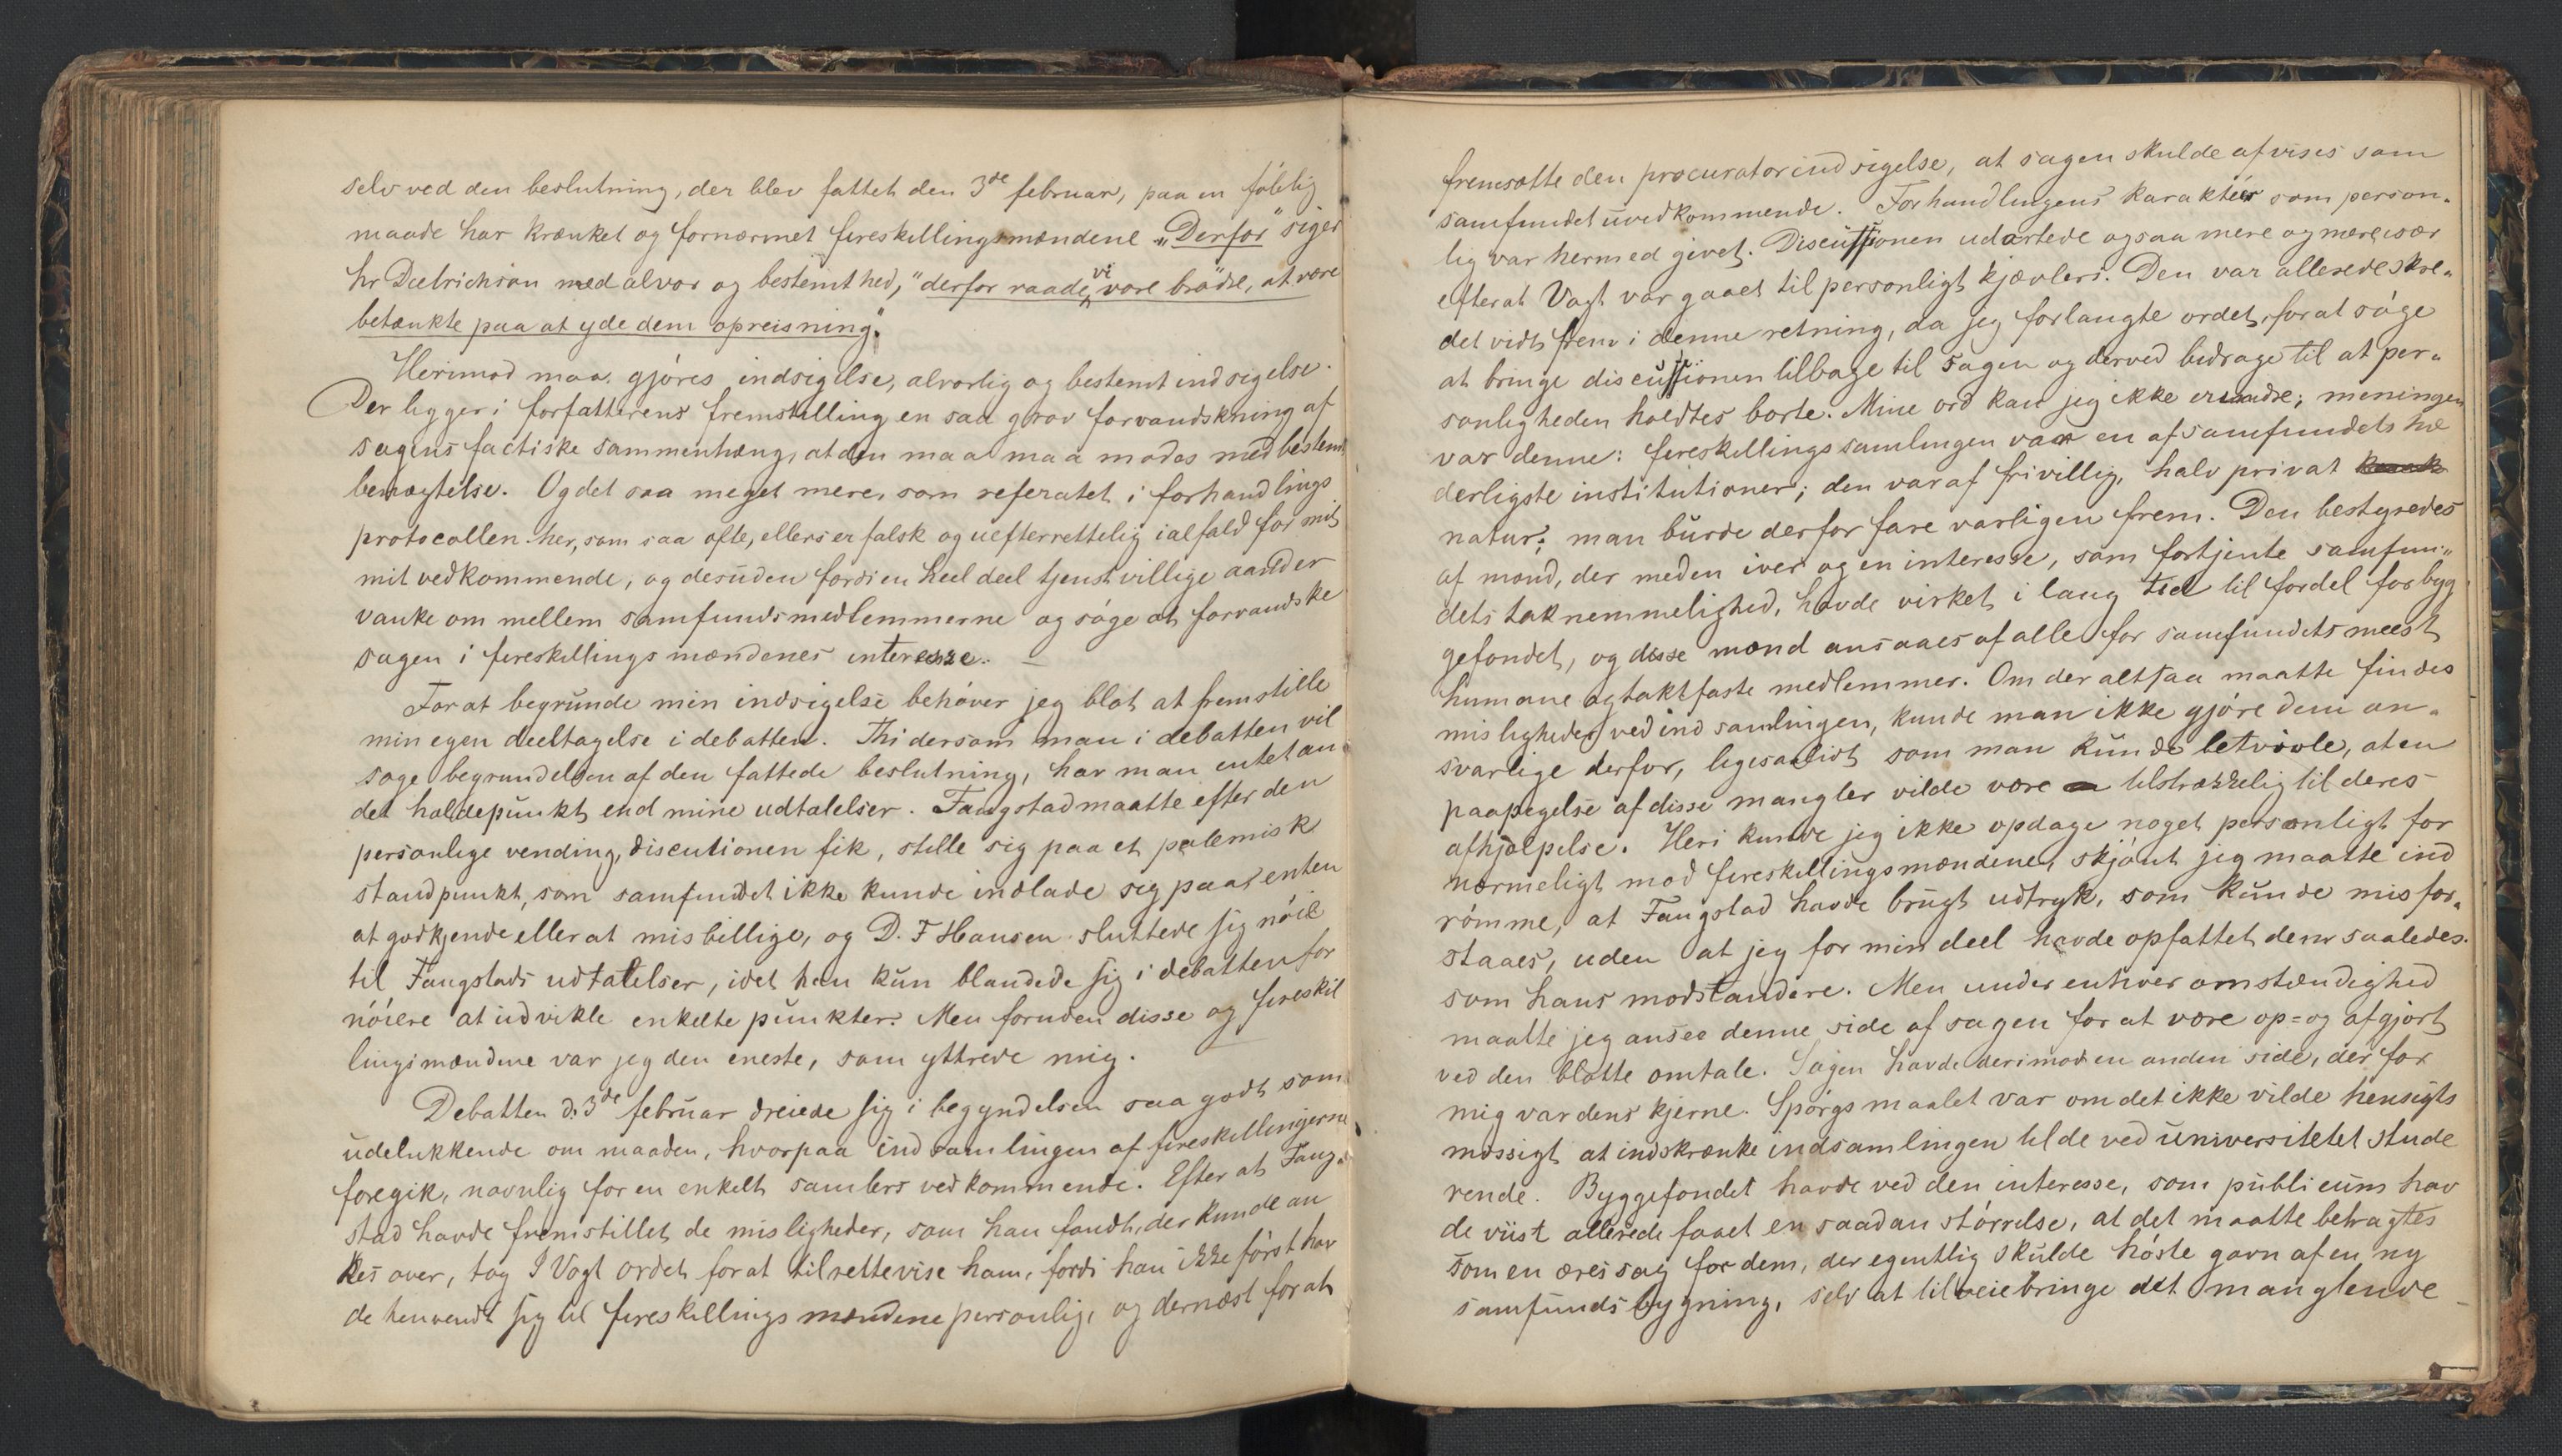 selv ved den beslutning, der blev fattet den 3de februar, paa en følelig
maade har krænket og fornærmet fireskillingsmændene. „Derfor" siger
hr Dietrichson med alvor og bestemthed, "derfor raade vi vore brødre, at være
betænkte paa at yde dem opreisning".
Herimod maa gjøres indsigelse, alvorlig og bestemt indsigelse.
Der ligger i forfatterens fremstilling en saa grov forvandskning af
sagens factiske sammenhæng, at den maa maa mødes med bestemt
benægtelse. Og det saa meget mere, som referatet i forhandlings
protocollen her, som saa ofte, ellers er falsk og uefterrettelig ialfald for mit
mit vedkommende, og desuden fordi en heel deel tjenstvillige aander
vanke om mellem samfundsmedlemmerne og søge at forvandske
sagen i fireskillingsmændenes interesse. —
For at begrunde min indsigelse behøver jeg blot at fremstille
min egen deeltagelse i debatten. Thi dersom man i debatten vil
søge begrundelsen af den fattede beslutning, har man intet an
det holdepunkt end mine udtalelser. Fangstad maatte efter den
personlige vending, discutionen fik, stille sig paa et polemisk
standpunkt, som samfundet ikke kunde indlade sig paa enten
at godkjende eller at misbillige, og D. F Hansen sluttede sig nøie
til Fangstads udtalelser, idet han kun blandede sig i debatten for
nøiere at udvikle enkelte punkter. Men foruden disse og fireskil
lingsmændene var jeg den eneste, som yttrede mig.
Debatten d. 3de februar dreiede sig i begyndelsen saa godt som
udelukkende om maaden, hvorpaa indsamlingen af fireskillingerne
foregik, navnlig for en enkelt samlers vedkommende. Efter at Fang-
stad havde fremstillet de misligheder, som han fandt, der kunde an
kes over, tog J Vogt ordet for at tilrettevise ham, fordi han ikke først hav
de henvendt sig til fireskillingsmændene personlig, og dernæst for at
fremsatte den procuratorindsigelse, at sagen skulde afvises som
samfundet uvedkommende. Forhandlingens karakter som person-
lig var hermed givet. Discussionen udartede ogsaa mere og mere især
efterat Vogt var gaaet til personligt kjævleri. Den var allerede skre-
det vidt frem i denne retning, da jeg forlangte ordet, for at søge
at bringe discussionen tilbage til sagen og derved bidrage til at per-
sonligheden holdtes borte. Mine ord kan jeg ikke erindre; meningen
var denne: fireskillingssamlingen var en af samfundets hæ
derligste institutioner; den var af frivillig, halv privat
natur; man burde derfor fare varligen frem. Den bestyredes
af mænd, der med en iver og en interesse, som fortjente samfun-
dets taknemmelighed, havde virket i lang tid til fordel for byg
gefondet, og disse mænd ansaaes af alle for samfundets meest
humane og taktfaste medlemmer. Om der altsaa maatte findes
misligheder ved indsamlingen, kunde man ikke gjøre dem an-
svarlige derfor, ligesaalidt som man kunde betvivle, at en
paapegelse af disse mangler vilde være tilstrækkelig til deres
afhjælpelse. Heri kunde jeg ikke opdage noget personligt for
nærmeligt mod fireskillingsmændene, skjønt jeg maatte ind
rømme, at Fangstad havde brugt udtryk, som kunde misfor-
staaes, uden at jeg for min deel havde opfattet dem saaledes.
som hans modstandere. Men under enhver omstændighed
maatte jeg ansee denne side af sagen for at være op= og afgjort
ved den blotte omtale. Sagen havde derimod en anden side, der for
mig var dens kjerne. Spørgsmaalet var om det ikke vilde hensigts
mæssigt at indskrænke indsamlingen til de ved universitetet stude
rende. Byggefondet havde ved den interesse, som publicum hav
de viist allerede faaet en saadan størrelse, at det maatte betragtes
som en æressag for dem, der egentlig skulde høste gavn af en ny
samfundsbygning, selv at tilveiebringe det manglende